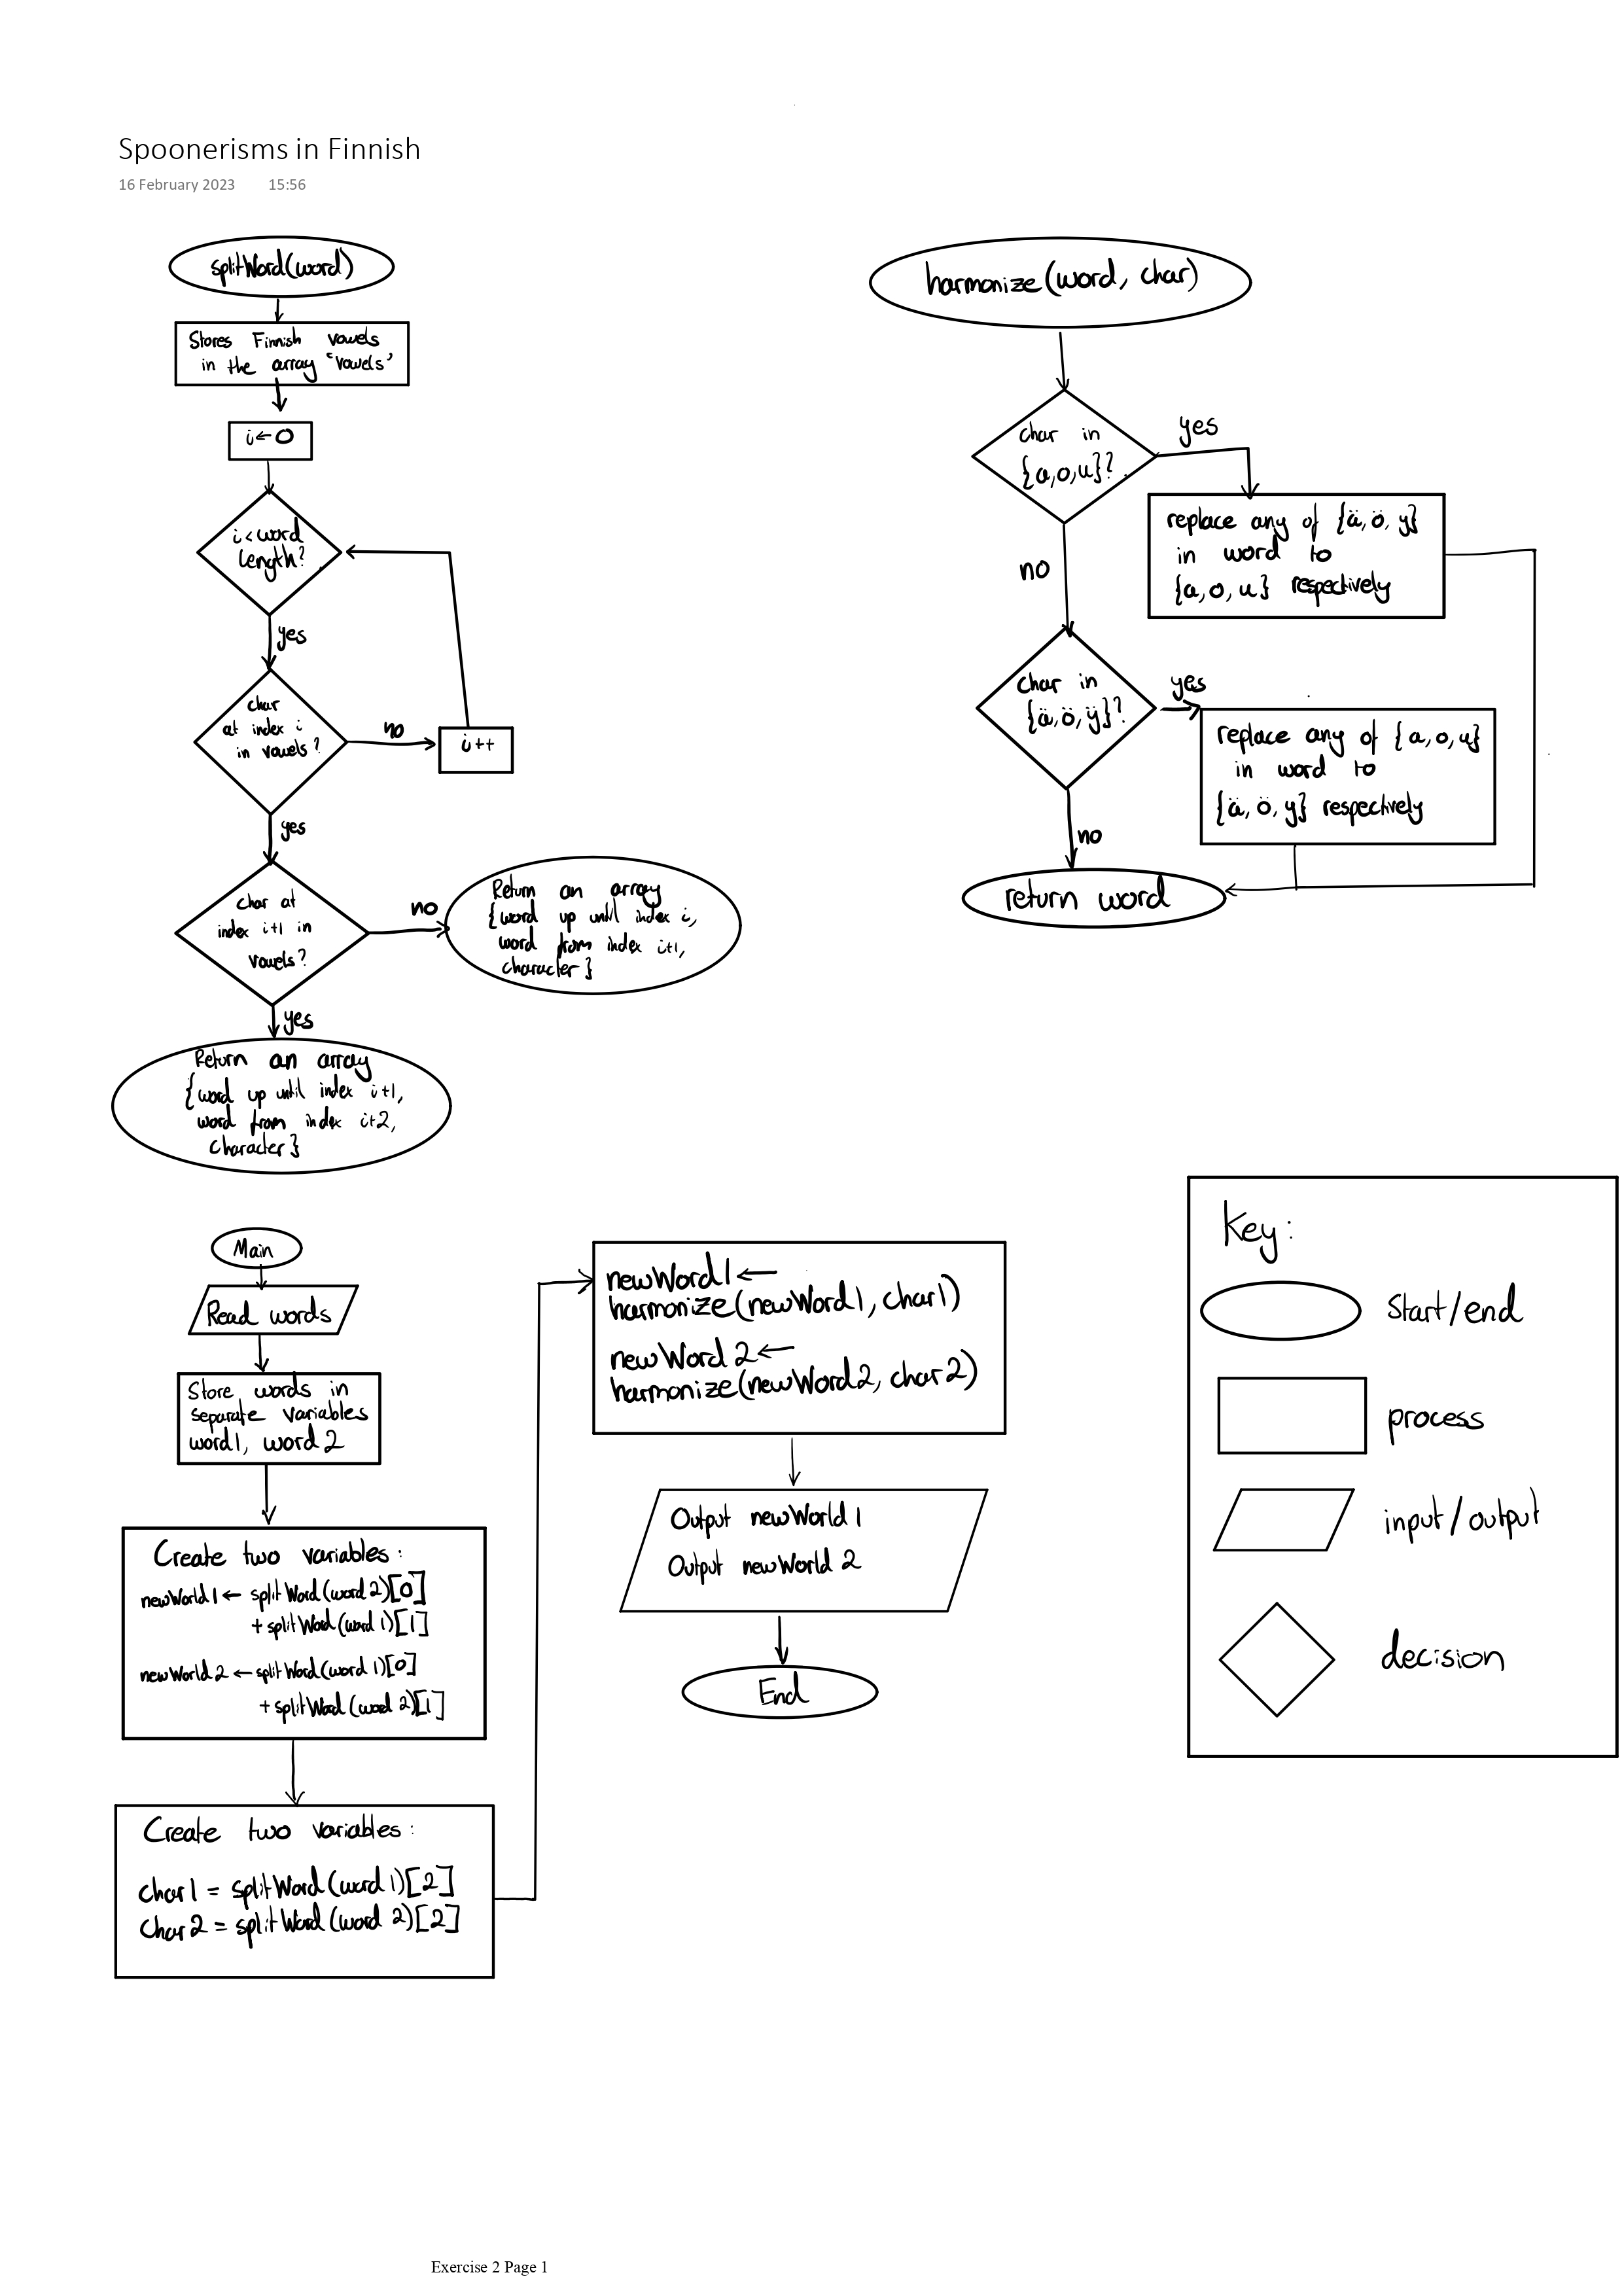 Spoonerisms in Finnish
16 February 2023 15:56
splitWord(word)
Stores Finnish vowels
in the array 'vowels'
i←0
i<word
length?
yes
char
at index i
in vowels?
no
i++
yes
char at
index i+1 in
vowels?
no
Return an array
{word up until index i,
word from index i+1,
character}
yes
Return an array
{word up until index i+1,
word from index i+2,
character}
harmonize(word, char)
char in
{a,o,u}?
yes
replace any of {ä,ö,y}
in word to
{a,o,u} respectively
no
char in
{ä,ö,ÿ}?
yes
replace any of {a,o,u}
in word to
{ä,ö,y} respectively
no
return word
Main
Read words
Store words in
separate variables
word1, word2
Create two variables:
newWorld1← splitWord(word2)[0]
+splitWord(word1)[1]
newWorld2←splitWord(word1)[0]
+splitWord(word2)[1]
Create two variables:
char1 = splitWord(word1)[2]
char2 = splitWord(word2)[2]
newWord1←
harmonize(newWord1, char1)
newWord2←
harmonize(newWord2, char2)
Output newWorld1
Output newWorld2
End
Key:
Start/end
process
input/output
decision
Exercise 2 Page 1